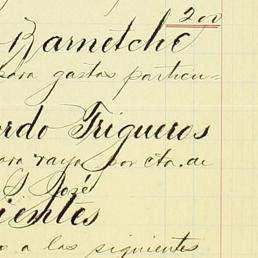 200
Barnetche
para gastos particu=
ardo Trigueros
para raya por cta. de
S José
ientes
o a los siguientes